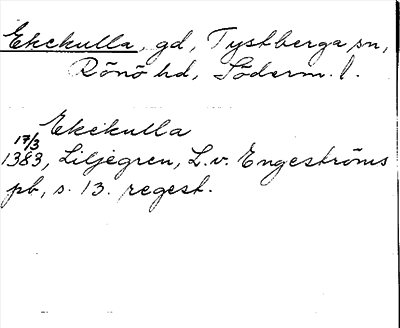 Ekekulla, gd, Tystberga sn,
Rönö hd, Söderm. l.
Ekekulla
17/3
1383, Liljegren, L. v. Engeströms
pb, s. 13. regest.